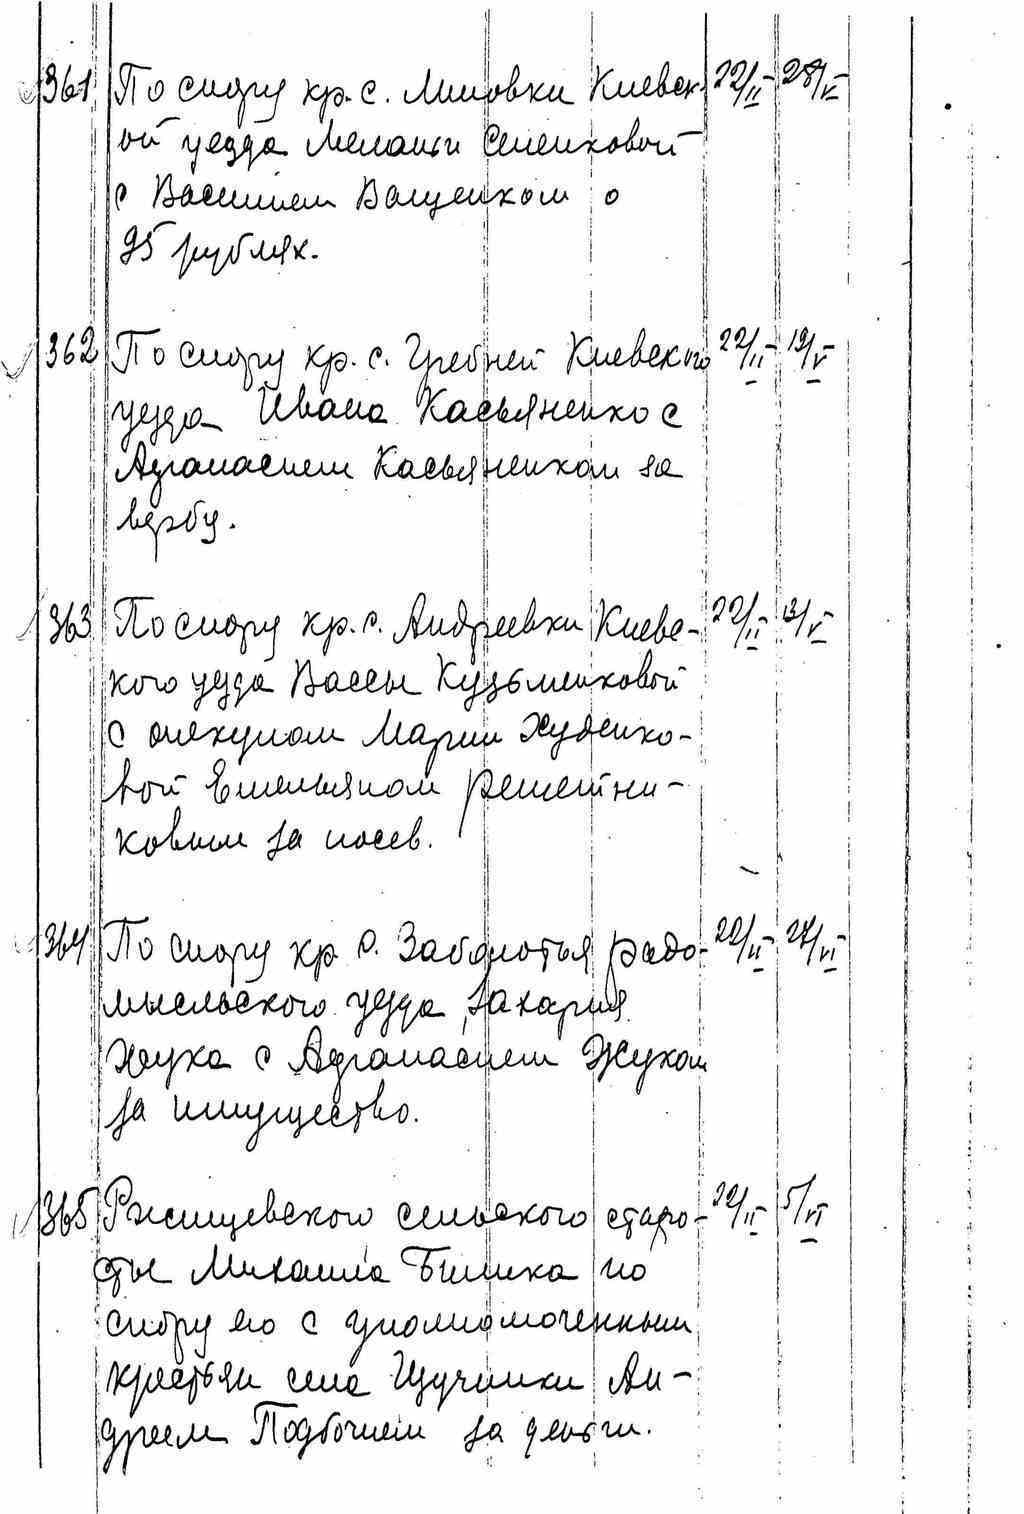 361 По спору кр. с. Липовки Киевск- 22/II- 28/V-
ой уезда Мелании Семенковой
с Василием Ващенком о
95 рублях.
362 По спору кр. с. Гребней Киевского 22/II- 19/V-
уезда Ивана Касьяненко с
Афанасием Касьяненком за
вербу.
363 По спору кр. с. Андреевки Киевс- 22/II- 13/V-
кого уезда Вассы Кузьменковой
с опекуном Марии Худенко-
вой Емельяном Решетни-
ковым за посев.
364 По спору кр. с. Заболотья Радо- 22/II- 27/VI-
мысльского уезда, Захария
Жука с Афанасием Жуком
за имущество.
365 Ржищевского сельского старо- 22/II- 5/VI
сты Михаила Билика по
спору его с уполномоченным
крестьян села Щучинки Ан-
дреем Подбочием за деньги.